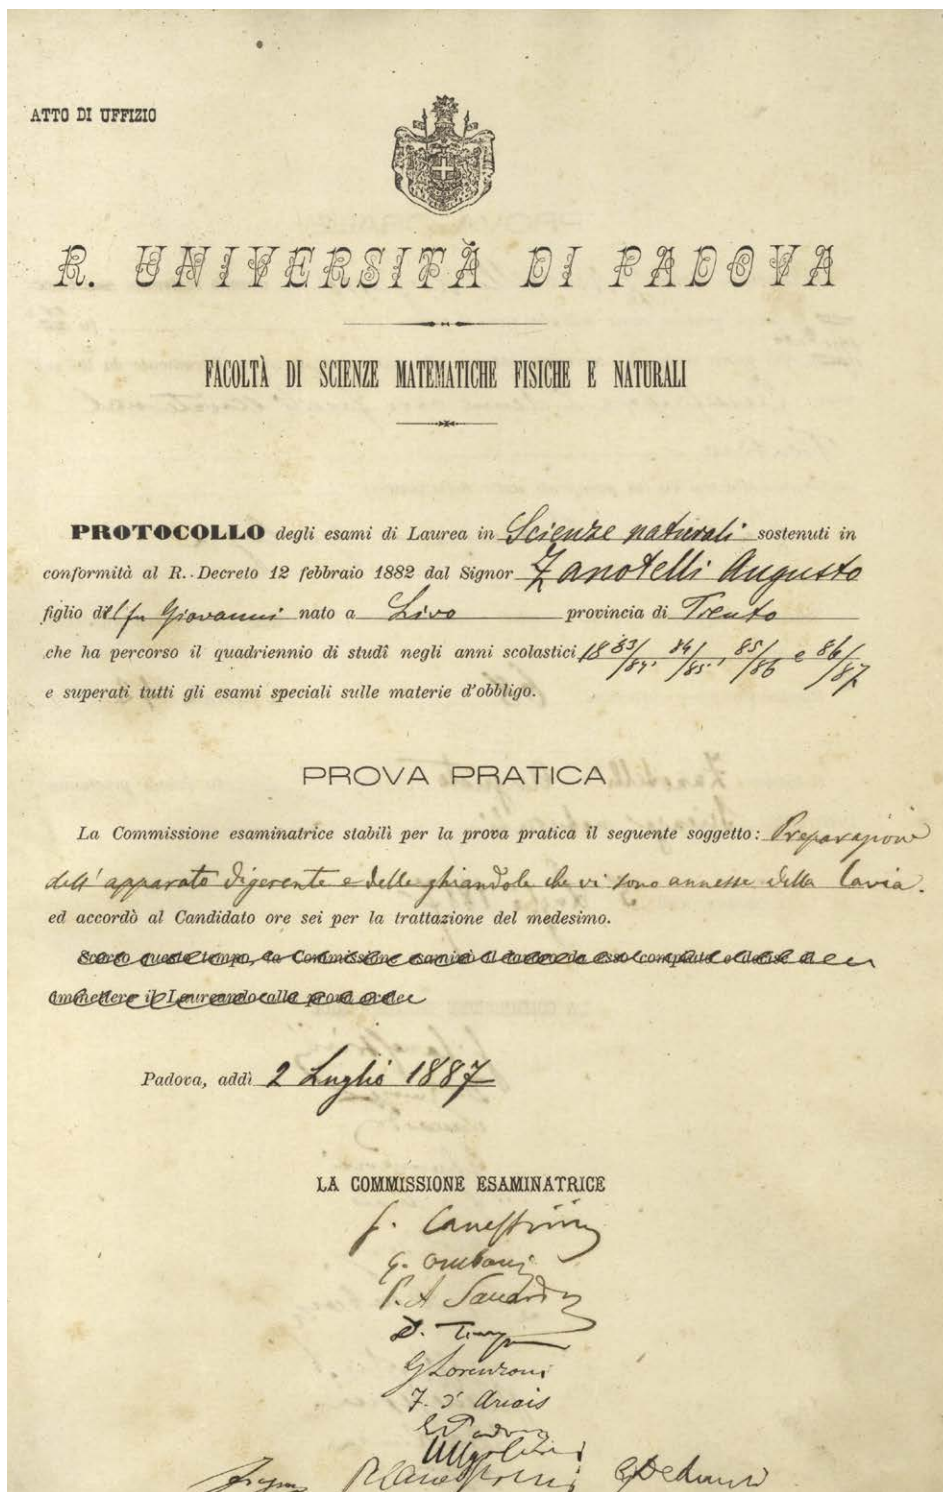 ATTO DI UFFIZIO
R. UNIVERSITÀ DI PADOVA
FACOLTÀ DI SCIENZE MATEMATICHE FISICHE E NATURALI
PROTOCOLLO degli esami di Laurea in Scienze naturali sostenuti in
conformità al R. Decreto 12 febbraio 1882 dal Signor Zanotelli Augusto
figlio del fu Giovanni nato a Livo provincia di Trento
che ha percorso il quadriennio di studî negli anni scolastici 1883/84, 84/85, 85/86 e 86/87
e superati tutti gli esami speciali sulle materie d'obbligo.
PROVA PRATICA
La Commissione esaminatrice stabilì per la prova pratica il seguente soggetto: Preparazione
dell'apparato digerente e delle ghiandole che vi sono annesse della Cavia.
ed accordò al Candidato ore sei per la trattazione del medesimo.
Scorso questo tempo, la Commissione esaminò il
ammettere il Laureando alla prova
Padova, addì 2 Luglio 1887
LA COMMISSIONE ESAMINATRICE
G. Omboni
P. A. Saccardo
G Lorenzoni
F. d'Arcais